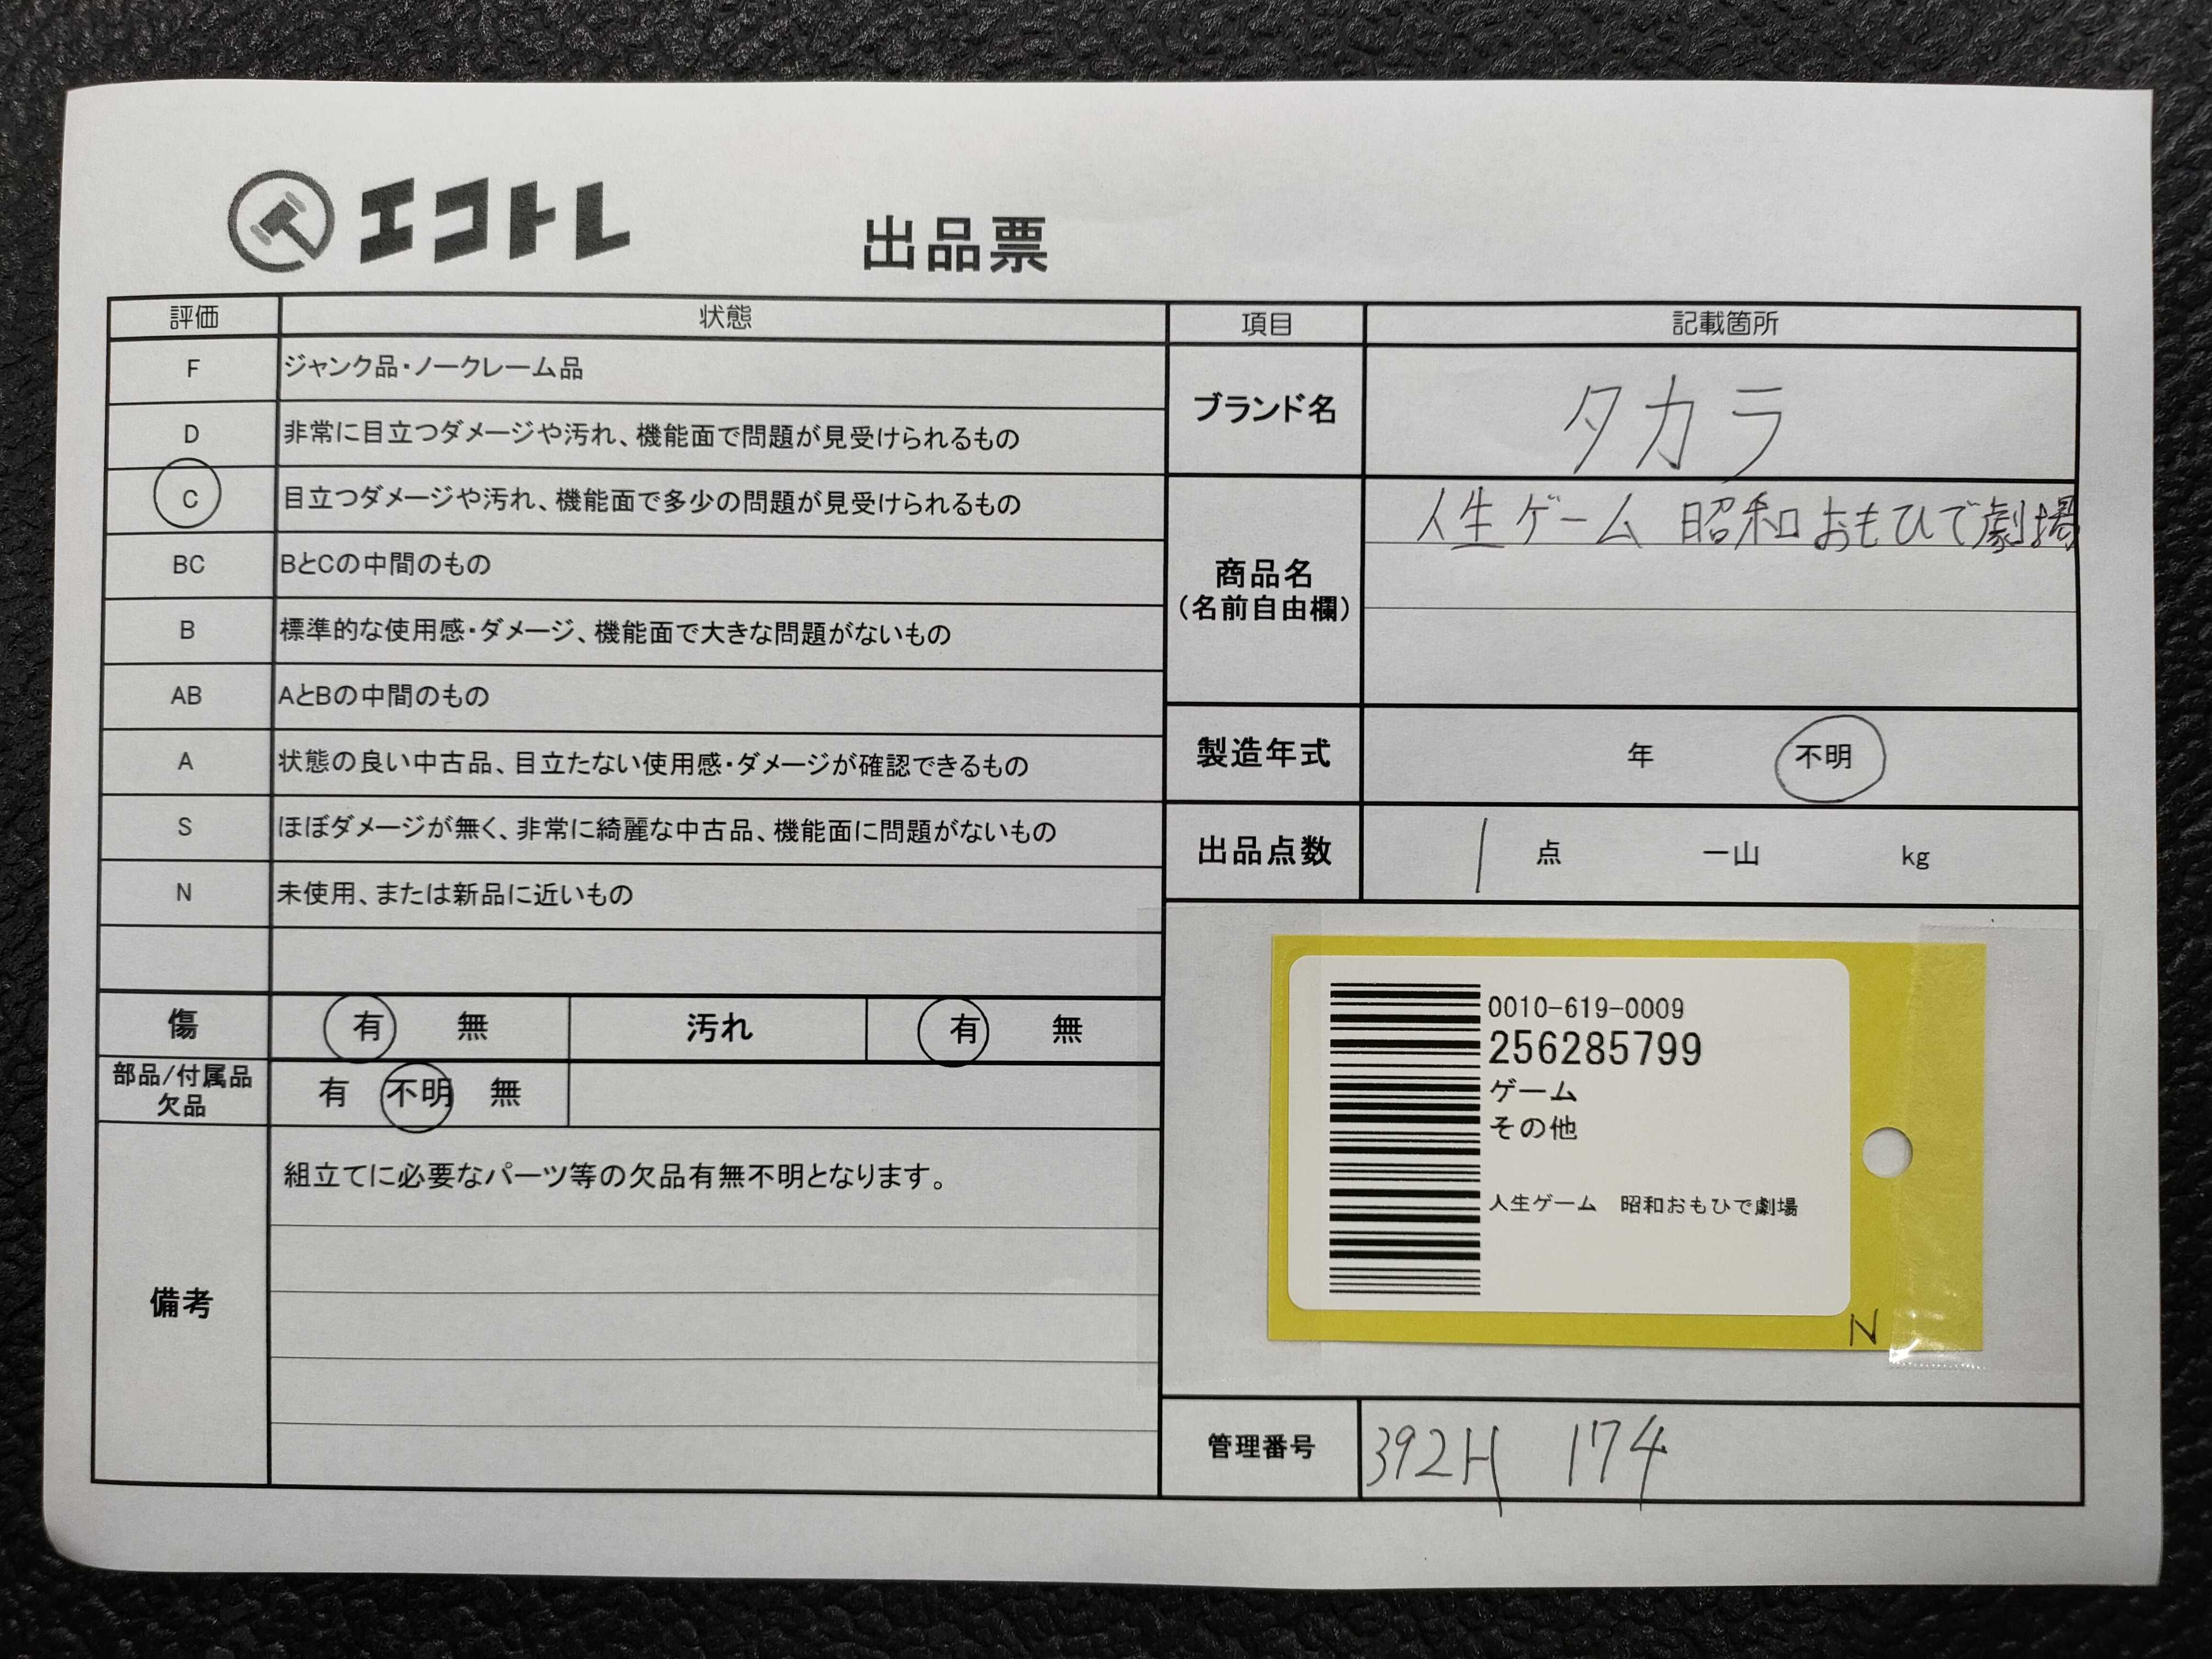 エコトレ
出品票
評価 状態
F ジャンク品・ノークレーム品
D 非常に目立つダメージや汚れ、機能面で問題が見受けられるもの
C 目立つダメージや汚れ、機能面で多少の問題が見受けられるもの
BC BとCの中間のもの
B 標準的な使用感・ダメージ、機能面で大きな問題がないもの
AB AとBの中間のもの
A 状態の良い中古品、目立たない使用感・ダメージが確認できるもの
S ほぼダメージが無く、非常に綺麗な中古品、機能面に問題がないもの
N 未使用、または新品に近いもの
傷 有 無 汚れ 有 無
部品/付属品
欠品
有 不明 無
備考
組立てに必要なパーツ等の欠品有無不明となります。
項目 記載箇所
ブランド名 タカラ
商品名
(名前自由欄)
人生ゲーム 昭和おもひで劇場
製造年式 年 不明
出品点数 1 点 一山 kg
0010-619-0009
256285799
ゲーム
その他
人生ゲーム 昭和おもひで劇場
N
管理番号 392H 174